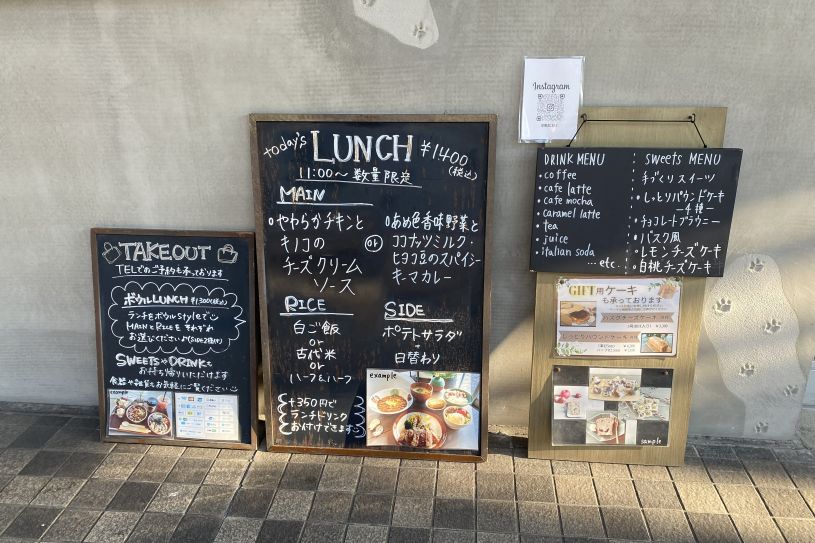 TAKEOUT
TELでのご予約も承っております
ボウルLUNCH ¥1300(税込)
ランチをボウルstyleで
MAINとRICEをそれぞれ
お選びください(SIDE2種付)
SWEETSやDRINKも
お持ち帰りいただけます
お気軽にご覧ください
example
today's LUNCH ¥1400
(税込)
11:00〜 数量限定
MAIN
・やわらかチキンと
キノコの
チーズクリーム
ソース
or
・あめ色香味野菜と
ココナッツミルク・
ヒヨコ豆のスパイシー
キーマカレー
RICE
白ご飯
or
古代米
or
ハーフ&ハーフ
SIDE
ポテトサラダ
+
日替わり
+350円で
ランチドリンク
お付けできます
example
Instagram
DRINK MENU
・coffee
・cafe latte
・cafe mocha
・caramel latte
・tea
・juice
・italian soda
...etc.
SWEETS MENU
手づくりスイーツ
・しっとりパウンドケーキ
―4種―
・チョコレートブラウニー
・バスク風
・レモンチーズケーキ
・白桃チーズケーキ
GIFT用ケーキ
も承っております
バスクチーズケーキ
しっとりパウンドケーキ
sample